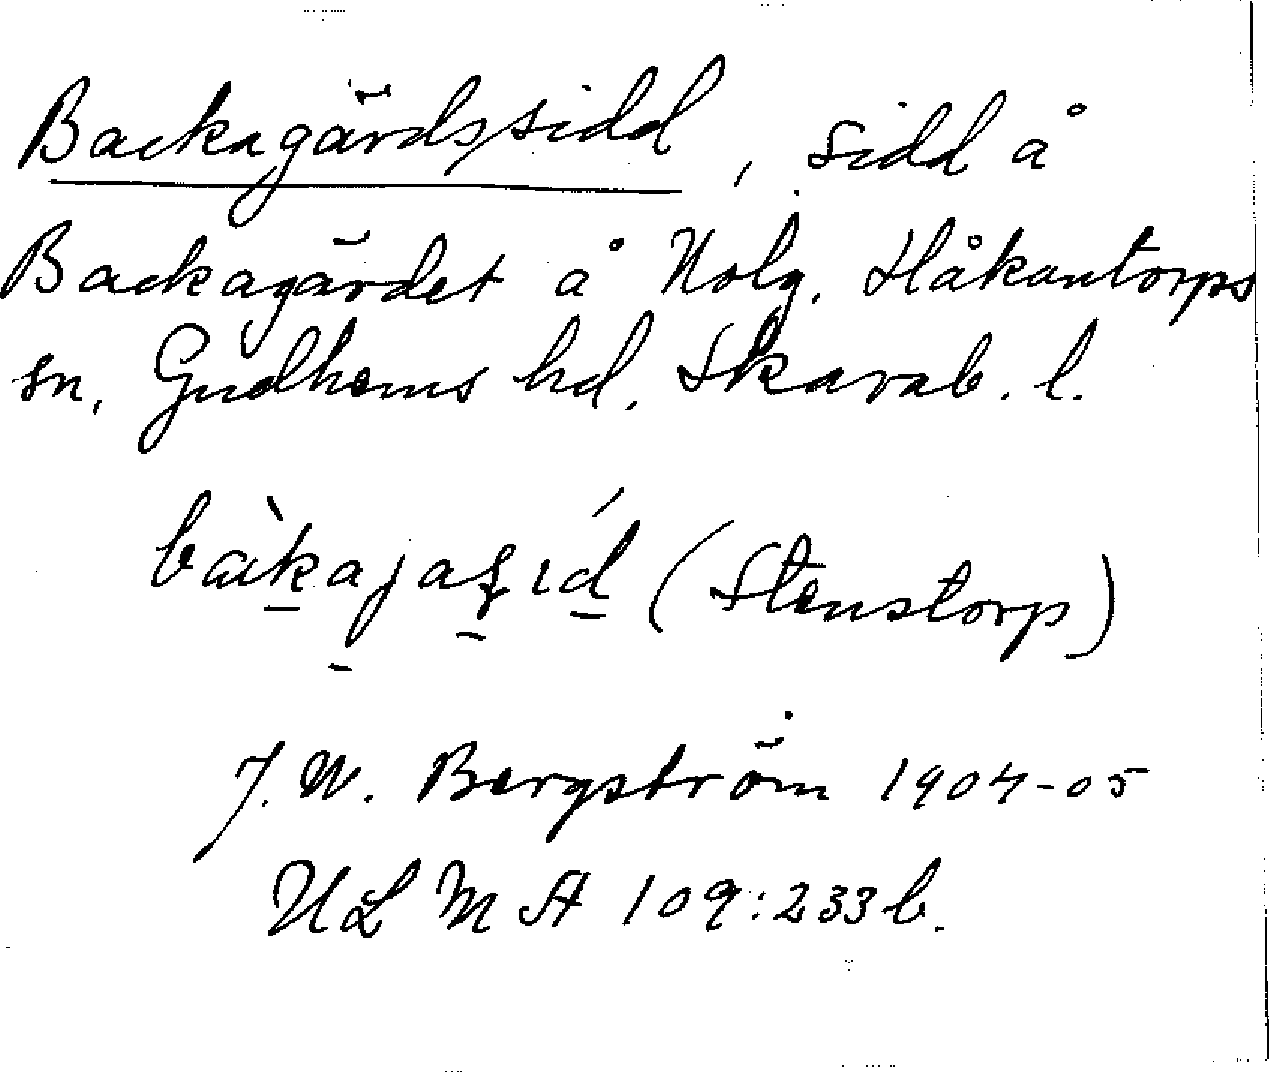 Backagärdssidd, sidd å
Backagärdet å Nolg. Håkantorps
sn, Gudhems hd. Skarab. l.
(Stenstorp)
J. W. Bergström 1904-05
ULMA 109:233b.